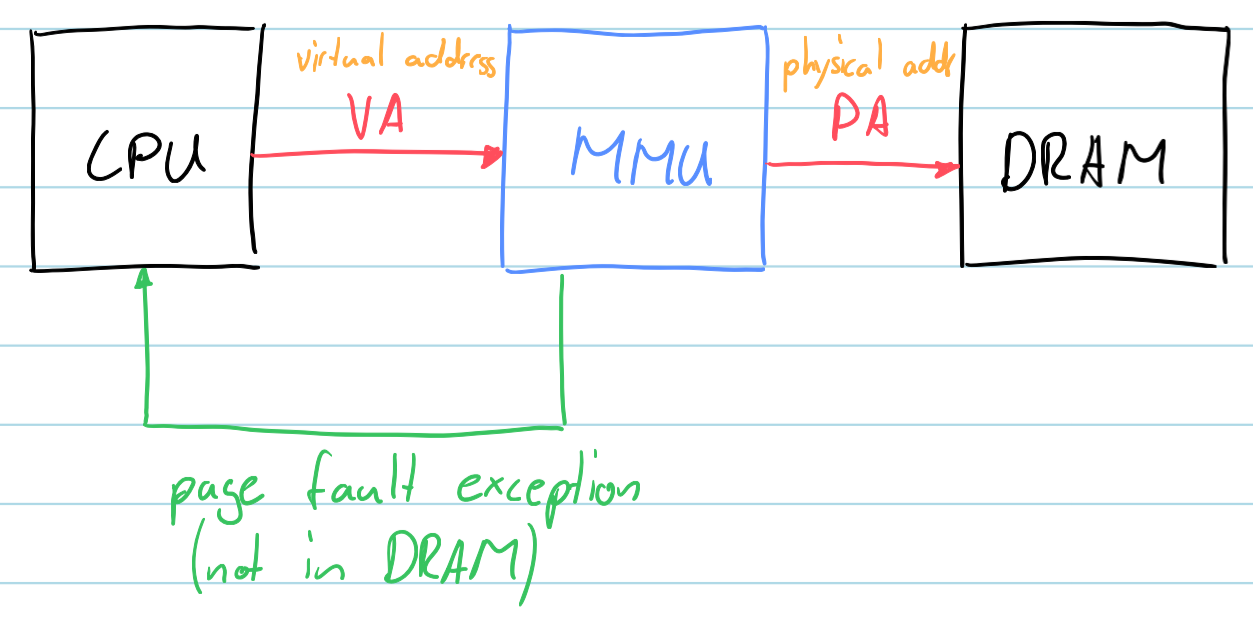 virtual address
VA
physical addr
PA
CPU
MMU
DRAM
page fault exception
(not in DRAM)